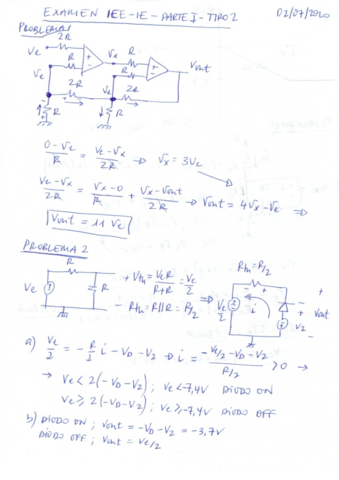 EXAMEN IEE-IE-PARTE I-TIPO 2 02/07/2020
PROBLEMA 1
2R
Ve R Vx R Vout
Ve 2R Vx 2R
R R
0-Ve/R = Ve-Vx/2R → Vx = 3Ve
Ve-Vx/2R = Vx-0/R + Vx-Vout/2R → Vout = 4Vx-Ve ⇒
Vout = 11 Ve
PROBLEMA 2
R Rth = R/2
Ve R + Vth = Ve R/R+R = Ve/2 ⇒ Ve/2 i V2 Vout
- Rth = R||R = R/2
a) Ve/2 = -R/2 i - VD - V2 → i = -Ve/2 - VD - V2/R/2 > 0 →
→ Ve < 2(-VD-V2) ; Ve < -7,4V DIODO ON
Ve ≥ 2(-VD-V2) ; Ve ≥ -7,4V DIODO OFF
b) DIODO ON ; Vout = -VD-V2 = -3,7V
DIODO OFF ; Vout = Ve/2